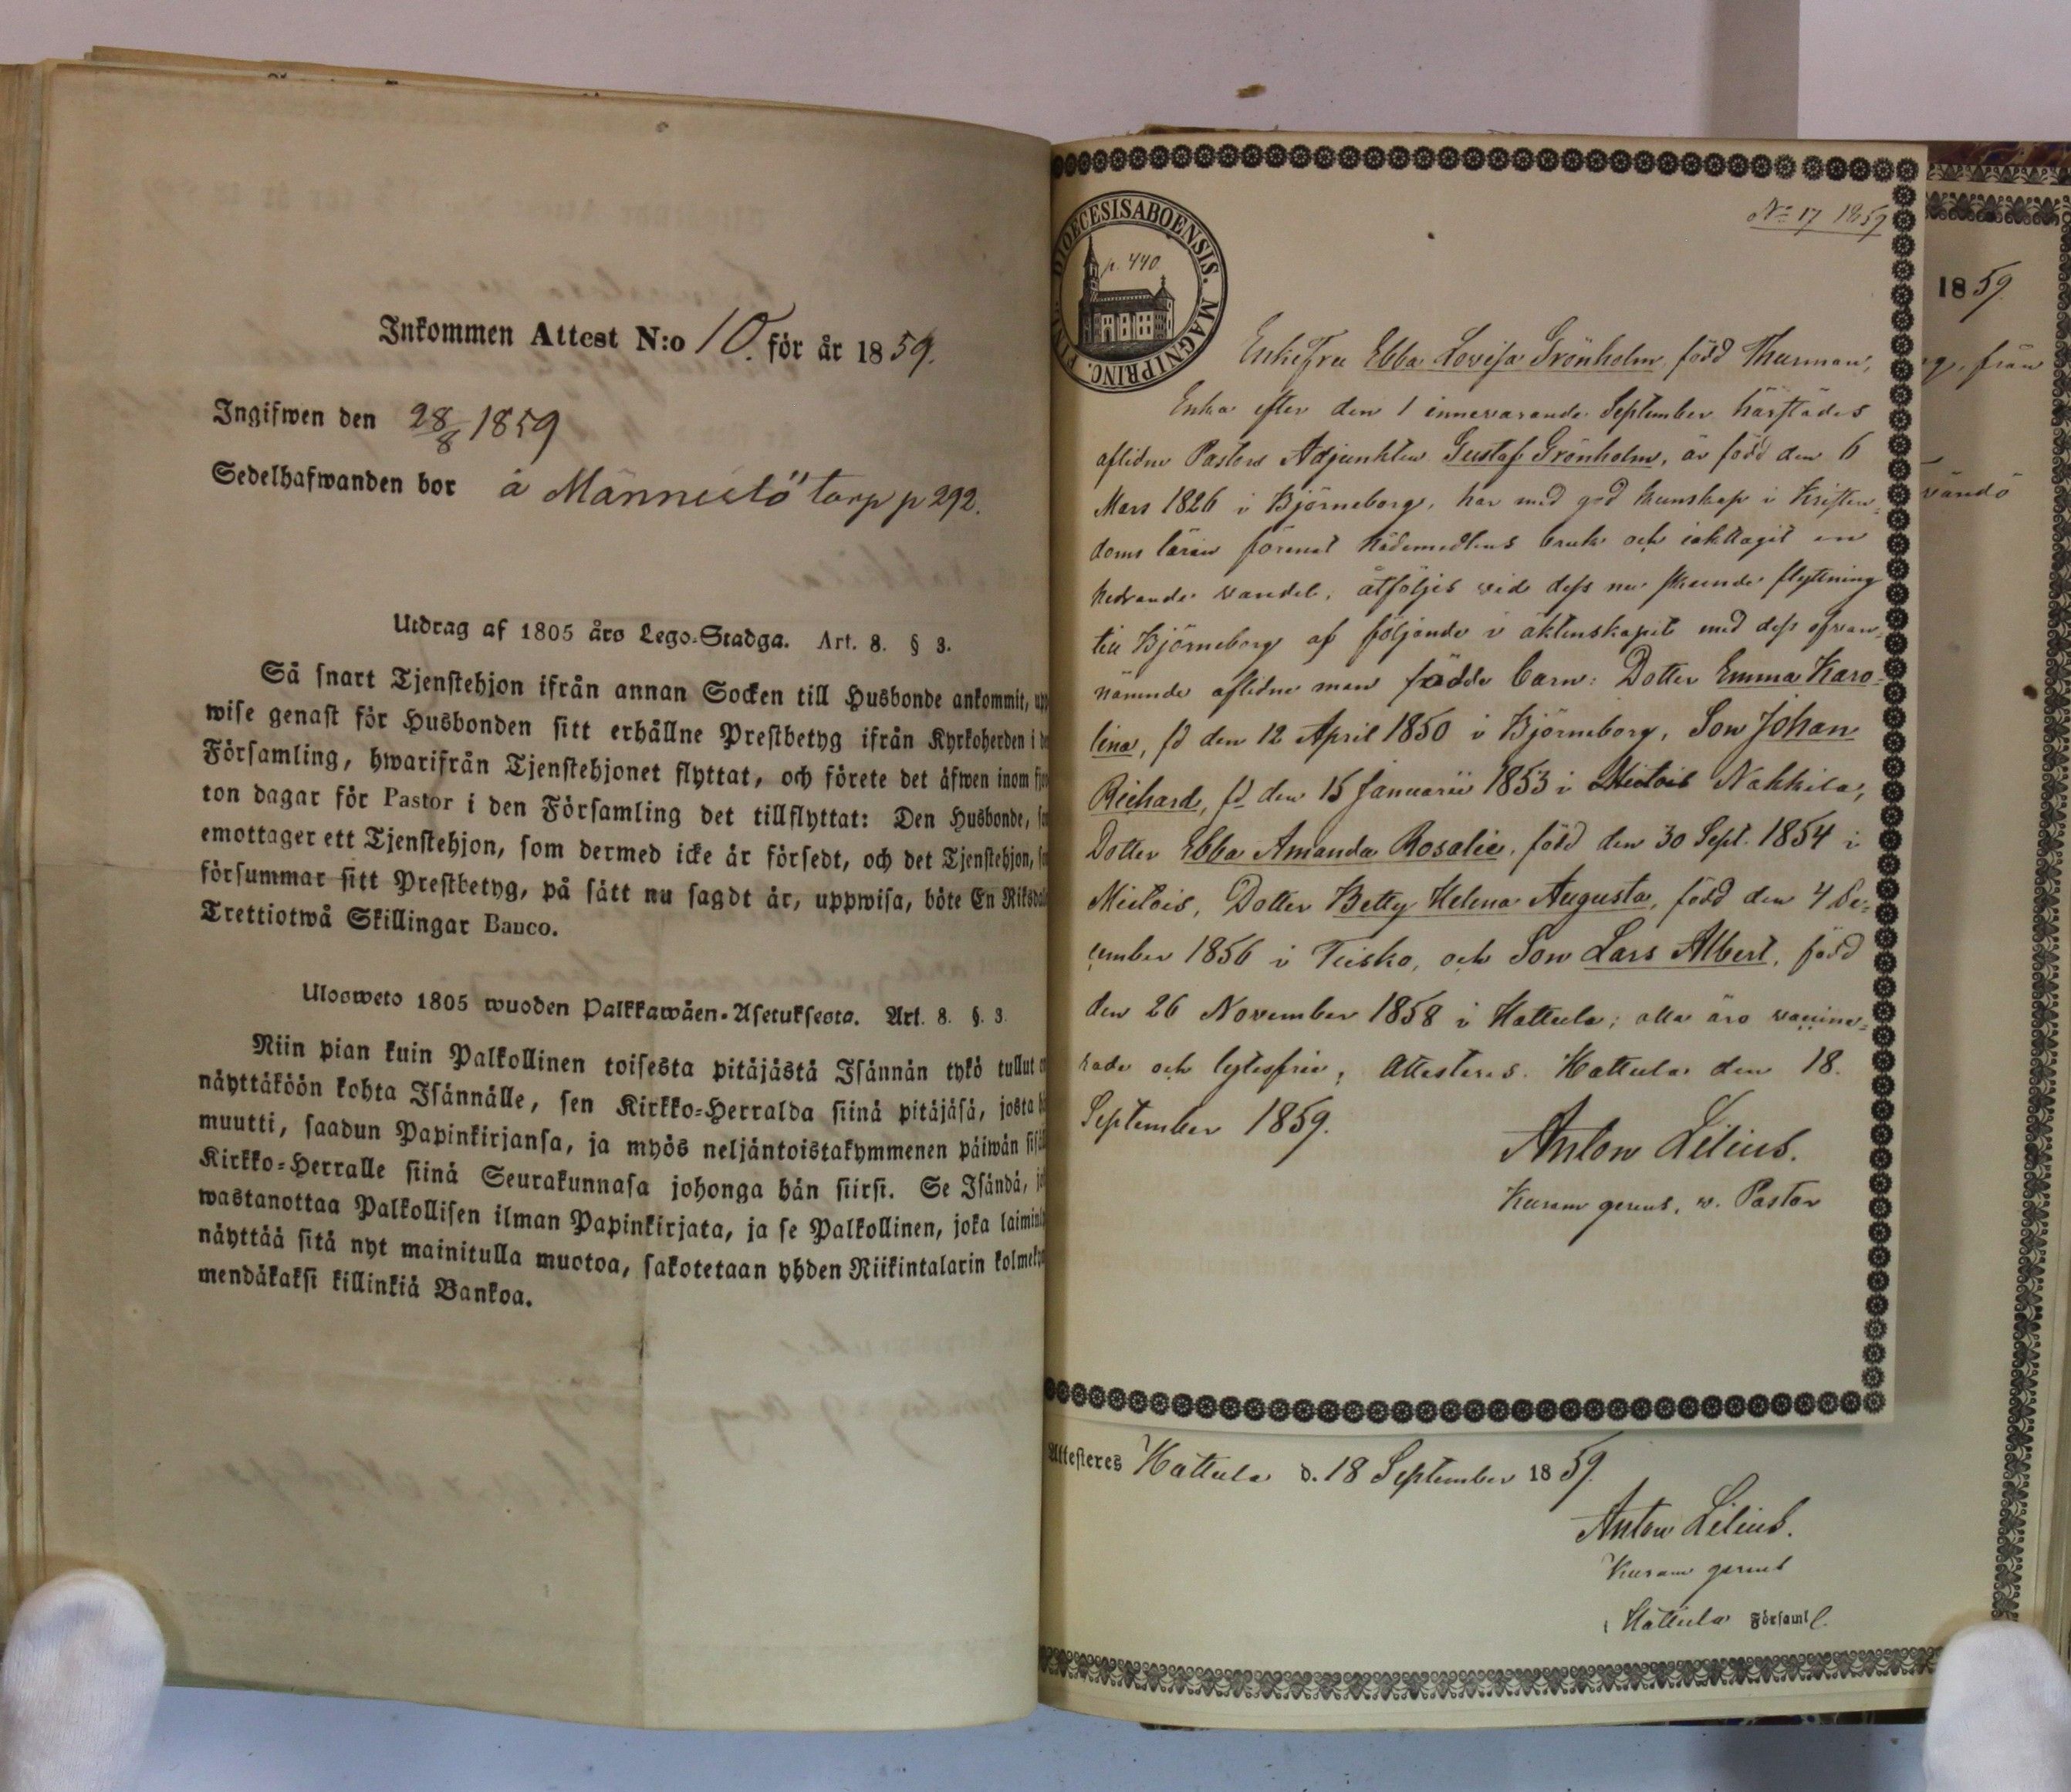 Inkommen Attest N:o 10. för år 1859.
Ingifwen den 28/8 1859
Sedelhafwanden bor å Männistö torp p 292.
Utdrag af 1805 års Lego-Stadga. Art. 8. § 3.
Så snart Tjenstehjon ifrån annan Socken till Husbonde ankommit, upp
wise genast för Husbonden sitt erhållne Prestbetyg ifrån Kyrkoherden i
Församling, hwarifrån Tjenstehjonet flyttat, och förete det äfwen inom
ton dagar för Pastor i den Församling det tillflyttat: Den Husbonde,
emottager ett Tjenstehjon, som dermed icke är försedt, och det Tjenstehjon,
försummar sitt Prestbetyg, på sätt nu sagdt är, uppwisa, böte En Riksdal
Trettiotwå Skillingar Banco.
Ulosweto 1805 wuoden Palkkawäen-Asetuksesta. Art. 8. §. 3.
Niin pian kuin Palkollinen toisesta pitäjästä Isännän tykö tullut
näyttäköön kohta Isännälle, sen Kirkko-Herralda siinä pitäjäsä, josta
muutti, saadun Papinkirjansa, ja myös neljäntoistakymmenen päiwän
Kirkko-Herralle siinä Seurakunnasa johonga hän siirsi. Se Isändä,
wastanottaa Palkollisen ilman Papinkirjata, ja se Palkollinen, joka laimin
näyttää sitä nyt mainitulla muotoa, sakotetaan yhden Riikintalarin kolme
mendäkaksi killinkiä Bankoa.
DIOECESIS ABOENSIS. MAGNI PRINC. FINL.
p. 440
No 17 1859
Enkefru Ebba Lovisa Grönholm, född Thurman,
Enka efter den 1 innevarande September härstädes
aflidne Pastors Adjunkten Gustaf Grönholm, är född den 6
Mars 1826 i Björneborg, har med god kunskap i Kristen-
doms läran förenat Nådemedlens bruk och iakttagit en
hedrande vandel, åtföljes vid dess nu skeende flyttning
till Björneborg af följande i äktenskapet med dess ofvan-
nämnde aflidne man födde barn: Dotter Emma Karo-
lina, fd den 12 April 1850 i Björneborg, Son Johan
Richard, fd den 15 Januarii 1853 i Nakkila,
Dotter Ebba Amanda Rosalie, född den 30 Sept. 1854 i
Mietois, Dotter Betty Helena Augusta, född den 4 De-
cember 1856 i Teisko, och Son Lars Albert, född
den 26 November 1858 i Hattula; alla äro vaccine-
rade och lytesfrie, Attesteras. Hattula den 18.
September 1859.
Anton Lilius.
Kuram gerens, v. Pastor
Attesteres Hattula d. 18 September 1859.
Anton Lilius.
Kuram gerens
i Hattula Församl.
1859
från